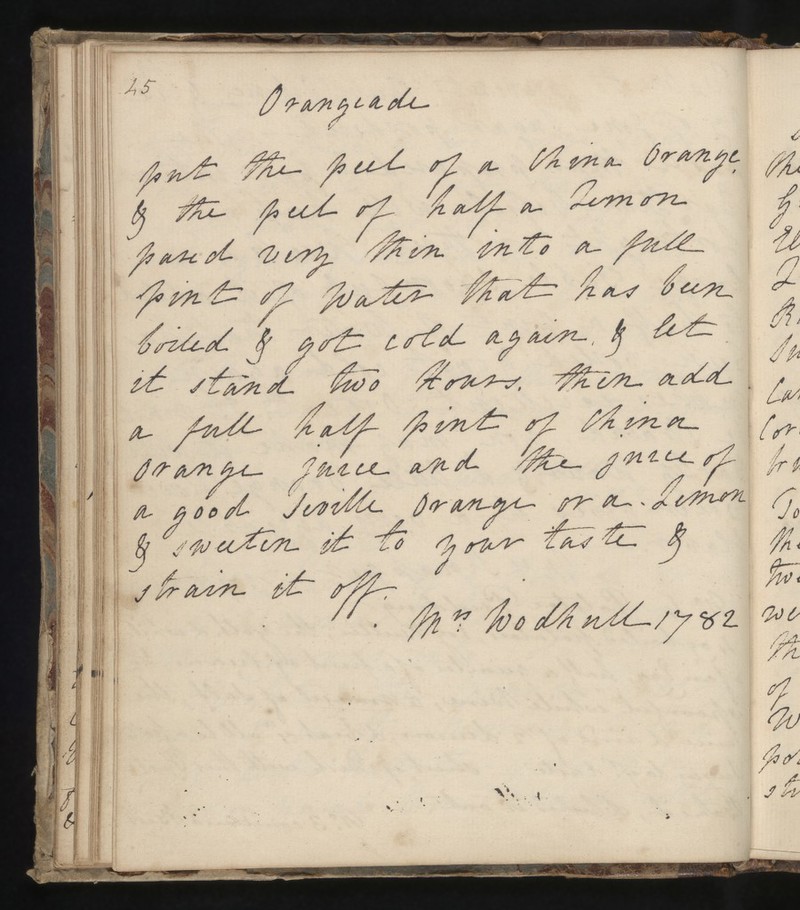 45
Orangeade
put the peel of a China Orange,
& the peel of half a Lemon
pared very thin into a full
pint of Water that has been
boiled & got cold again, & let
it stand two Hours. then add
a full half pint of China
Orange juice and the juice of
a good Seville Orange or a Lemon
& sweeten it to your taste &
strain it off.
Mrs Wodhull 1782